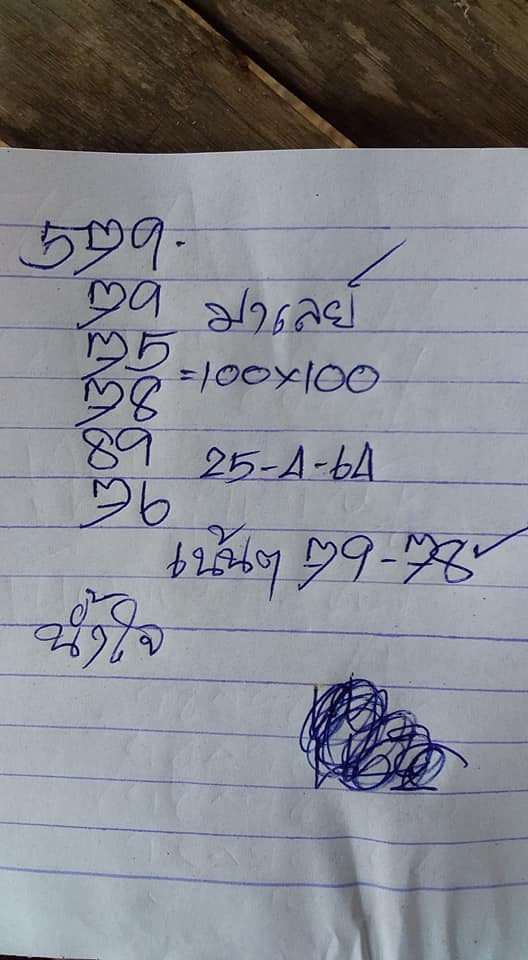 579.
79 มาเลย์
75
=100×100
78
89 25-4-64
76
เน้นๆ 79-78
น้ำใจ